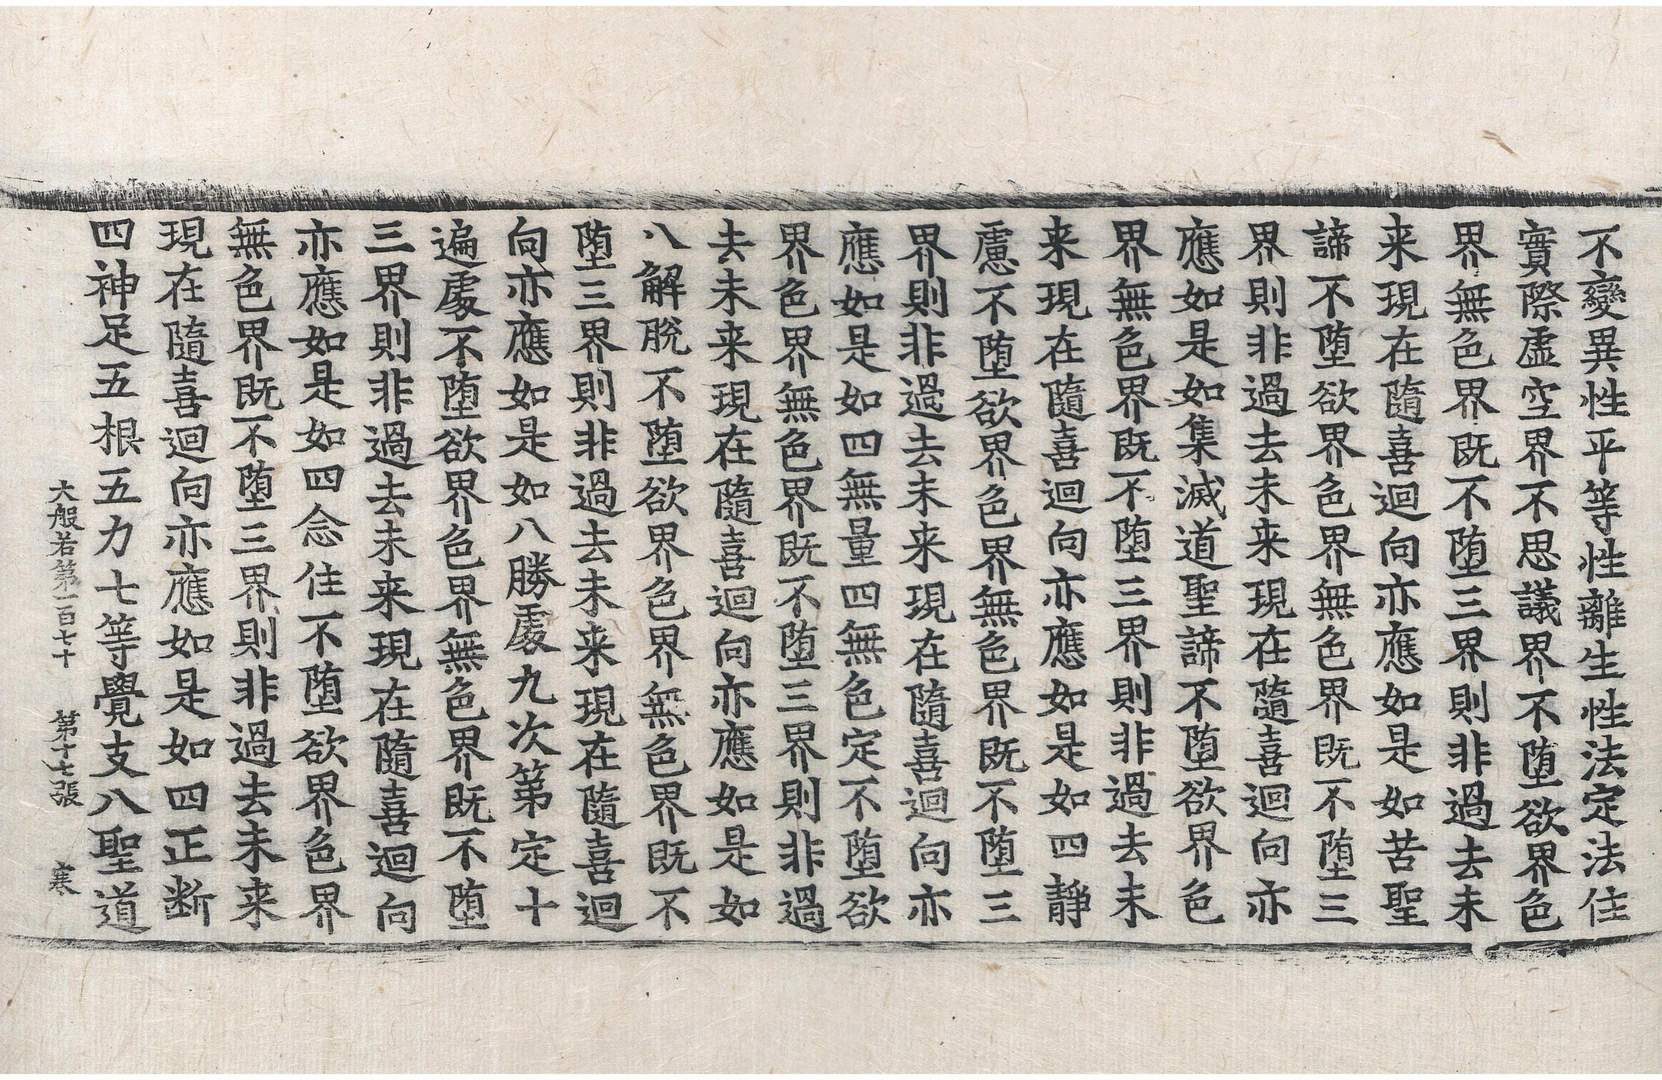 不變異性平等性離生性法定法住
實際虛空界不思議界不堕欲界色
界無色界既不堕三界則非過去未
来現在隨喜迴向亦應如是如苦聖
諦不堕欲界色界無色界既不堕三
界則非過去未来現在隨喜迴向亦
應如是如集滅道聖諦不堕欲界色
界無色界既不堕三界則非過去未
来現在隨喜迴向亦應如是如四靜
慮不堕欲界色界無色界既不堕三
界則非過去未来現在隨喜迴向亦
應如是如四無量四無色定不堕欲
界色界無色界既不堕三界則非過
去未来現在隨喜迴向亦應如是如
八解脫不堕欲界色界無色界既不
堕三界則非過去未来現在隨喜迴
向亦應如是如八勝處九次第定十
遍處不堕欲界色界無色界既不堕
三界則非過去未来現在隨喜迴向
亦應如是如四念住不堕欲界色界
無色界既不堕三界則非過去未来
現在隨喜迴向亦應如是如四正断
四神足五根五力七等覺支八聖道
大般若第一百七十 第十七張 寒